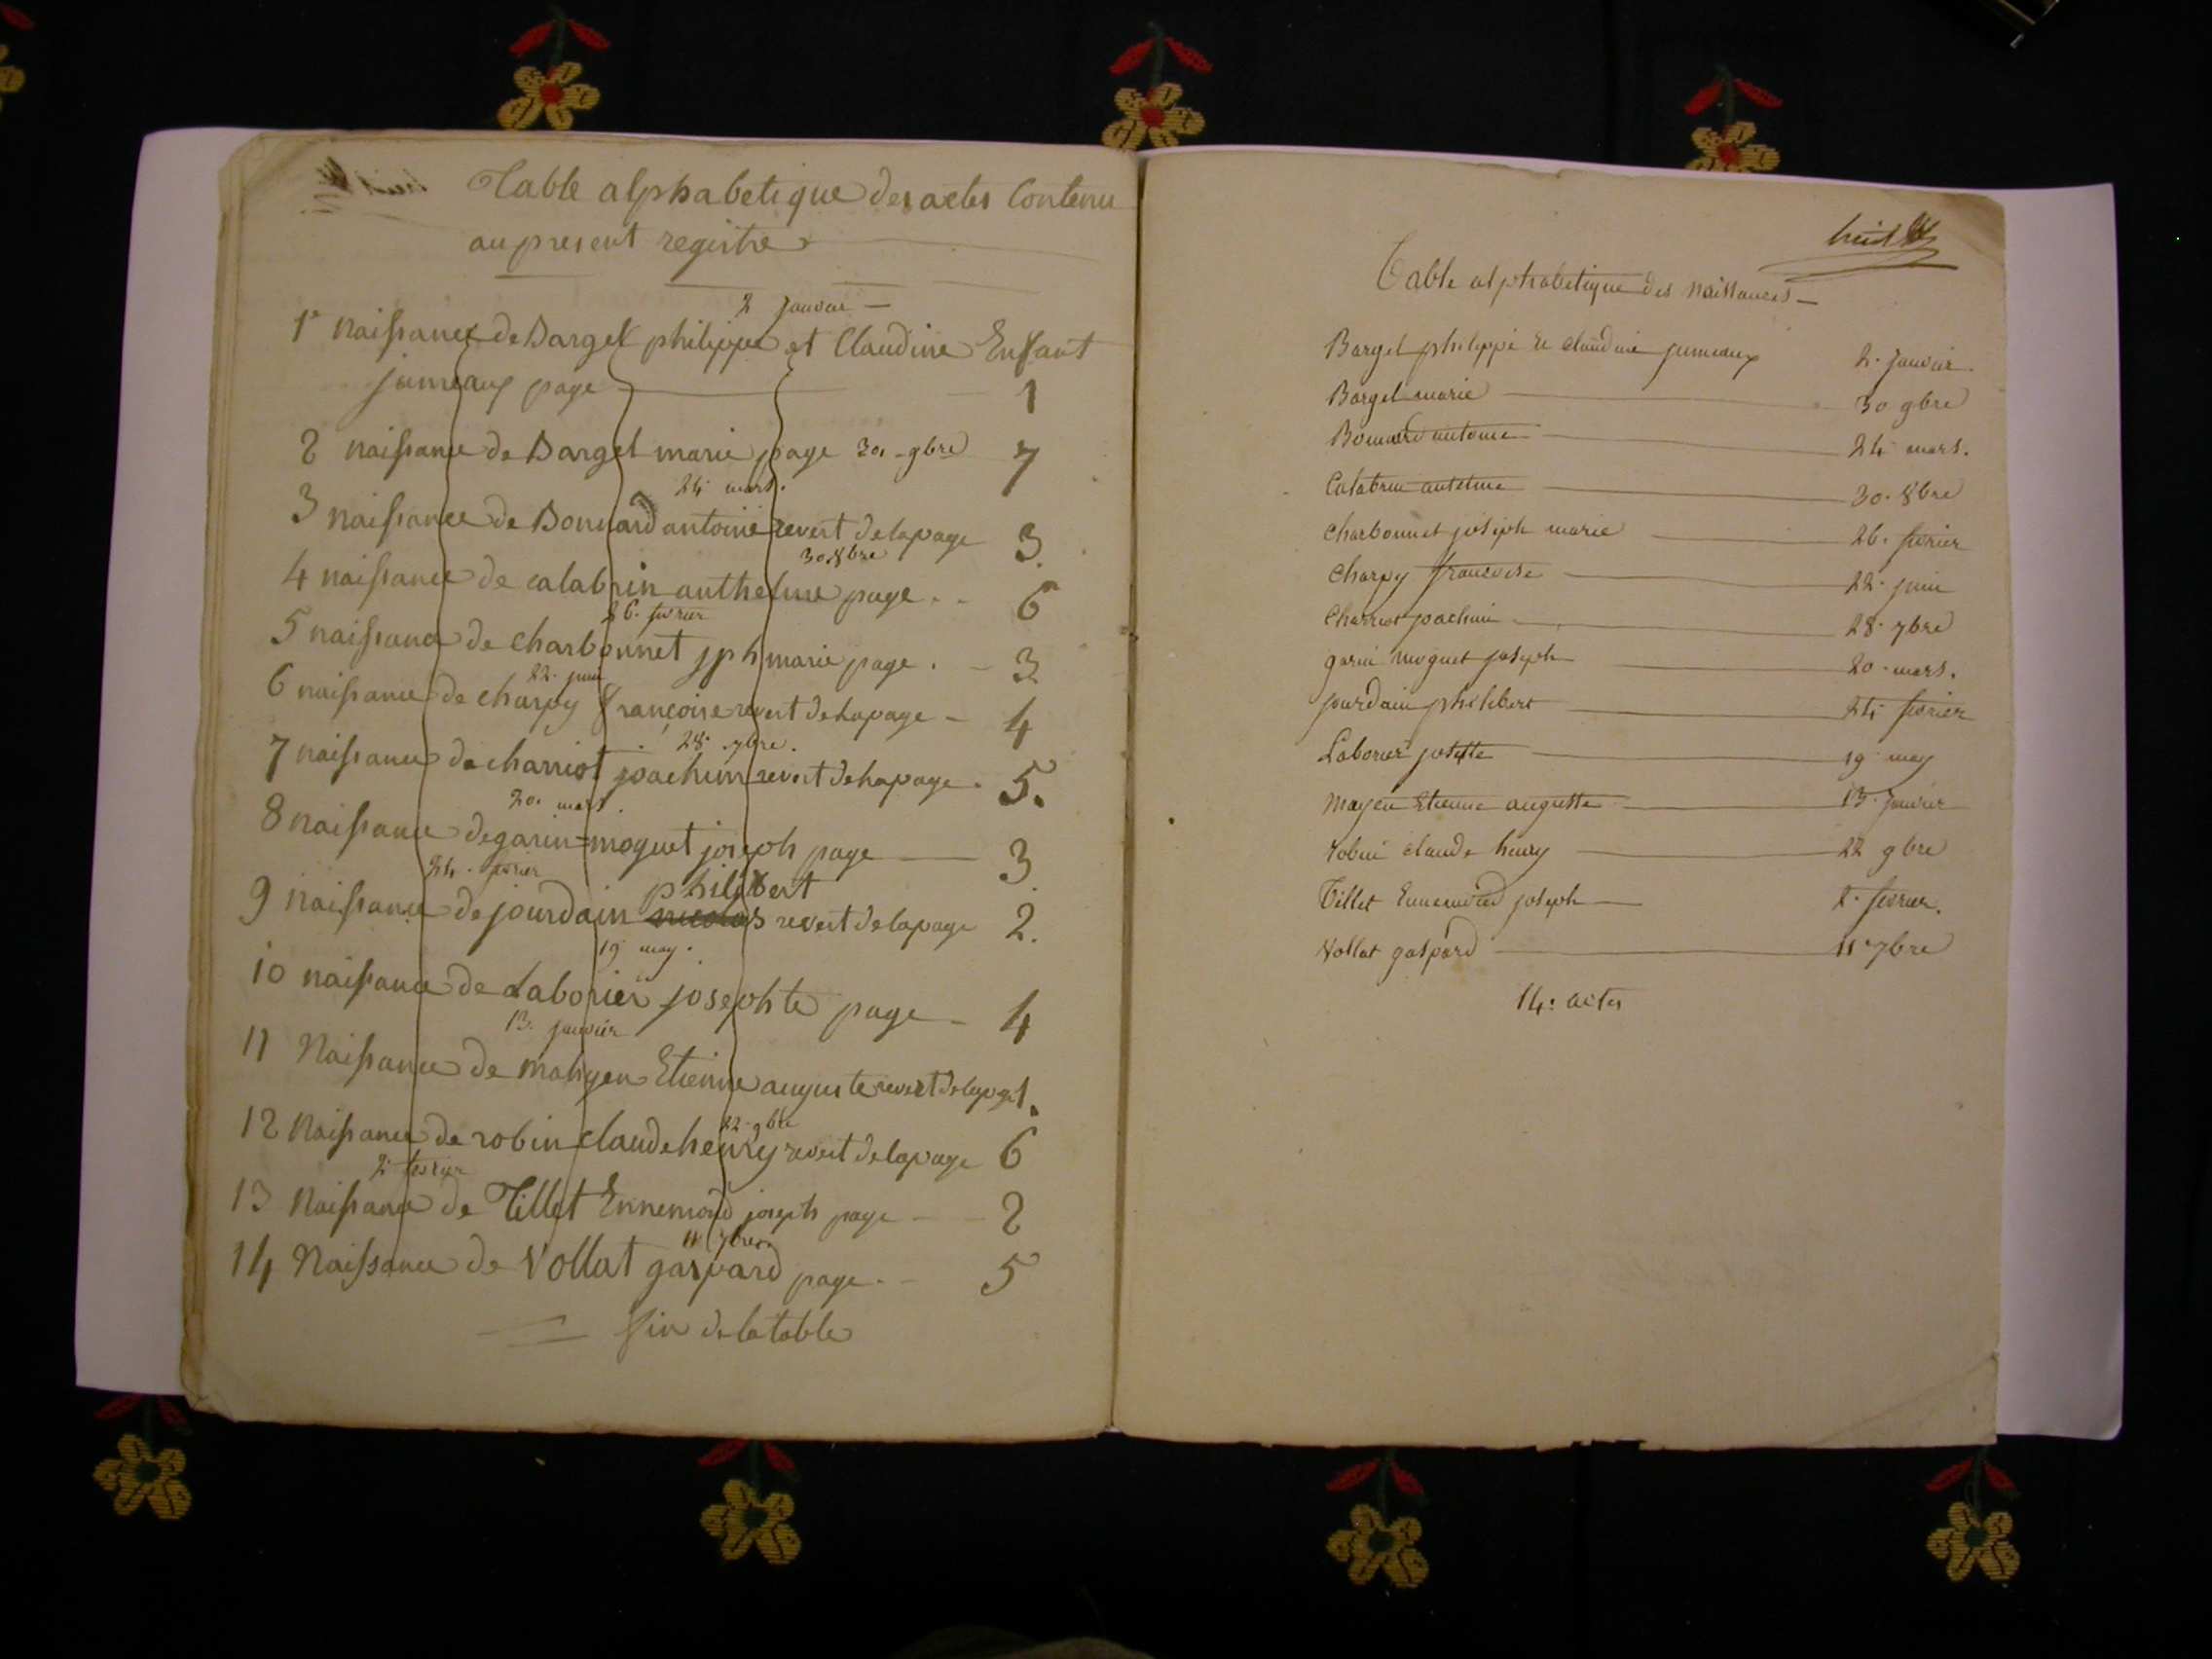 Table alphabetique des actes Contenu
au present registre
2 janvier
1° Naissance de Bargel philippe et Claudine Enfant
jumeaux page 1
2 naissance de Bargel marie page 30. 9bre 7
24 mars.
3 naissance de Bonnard antoine revert de la page 3.
30. 8bre
4 naissance de calabrin anthelme page 6
26. fevrier
5 naissance de charbonnet jph marie page. 3
22. juin
6 naissance de charpy françoise revert de la page 4
28. 7bre.
7 naissance de charriot joachim revert de la page. 5.
20. mars.
8 naissance de garin=moguet joseph page 3.
24. fevrier
philibert
9 naissance de jourdain revert de la page 2.
19 may.
10 naissance de Laborier josephte page 4
13. janvier
11 Naissance de mahyen Etienne auguste revert de la page 1.
22. 9bre
12 Naissance de robin claude henry revert de la page 6
2. fevrier
13 Naissance de Tillet Ennemond joseph page 2
11 7bre.
14 Naissance de Vollat gaspard page. 5
fin de la table
huit
Table alphabetique des Naissances
Bargel philippe et claudine jumeaux 2. janvier.
Bargel marie 30 9bre
Bonnard antoine 24 mars.
Calabrin antelme 30. 8bre
Charbonnet joseph marie 26. fevrier
Charpy francoise 22. juin
Charriot joachim 28. 7bre
garin moguet joseph 20. mars.
jourdain philibert 24 fevrier
Laborier josette 19 may
Mayen Etienne auguste 13. janvier
robin claude henry 22 9bre
Tillet Ennemond joseph 2. fevrier.
Vollat gaspard 11 7bre
14. actes